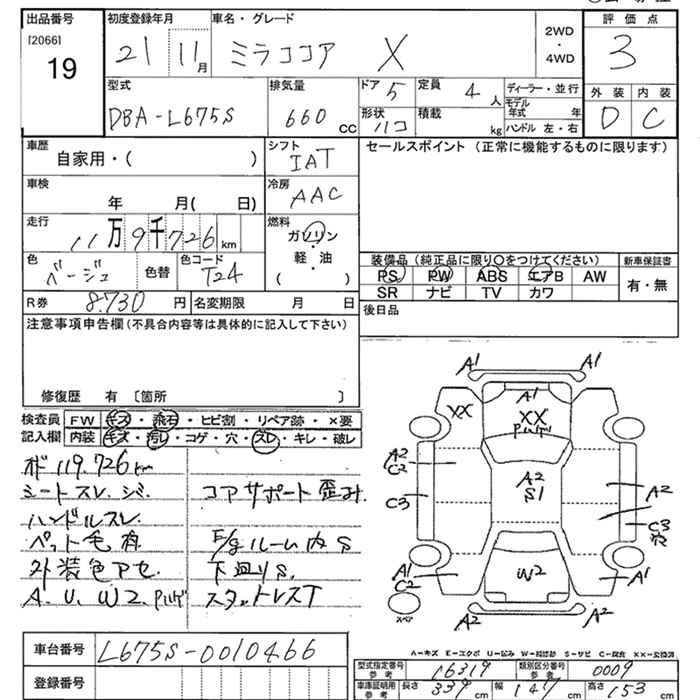 出品番号 初度登録年月 車名・グレード 2WD・4WD 評価点
[2066] 19 21 11月 ミラココア X 3
型式 排気量 ドア 5 定員 4人 ディーラー・並行 外装 内装
DBA-L675S 660cc 形状 ハコ 積載 kg モデル年式 年 ハンドル 左・右 D C
車歴 シフト セールスポイント (正常に機能するものに限ります)
自家用・( ) IAT
車検 年 月( 日) 冷房 AAC
走行 11万9千726km 燃料 ガソリン
軽・油
( )
色 ベージュ 色替 色コード T24
装備品 (純正品に限り○をつけてください) 新車保証書
PS PW ABS エアB AW 有・無
SR ナビ TV カワ
R券 8.730円 名変期限 月 日 後日品
注意事項申告欄(不具合内容等は具体的に記入して下さい)
修復歴 有 〔箇所 〕
検査員 FW キズ・飛石・ヒビ割・リペア跡・×要
記入欄 内装 キズ・汚レ・コゲ・穴・スレ・キレ・破レ
119.726km
シートスレ.
コアサポート歪み.
ハンドルスレ.
ペット毛有 ルーム内S
外装色アセ. 下廻りS.
A.U.W2. スタットレスT
A1 A1
A1
XX XX
A2
C2 A2
S1
C3 A2
C3
A1 W2 A1
C2
スペア A2 A2
A-キズ E-エクボ U-凹み W-補修跡 S-サビ C-腐食 XX-交換済
車台番号 L675S-0010466
型式指定番号 参考 16319 類別区分番号 参考 0009
登録番号
車庫証明用 参考 長さ 339cm 幅 147cm 高さ 153cm